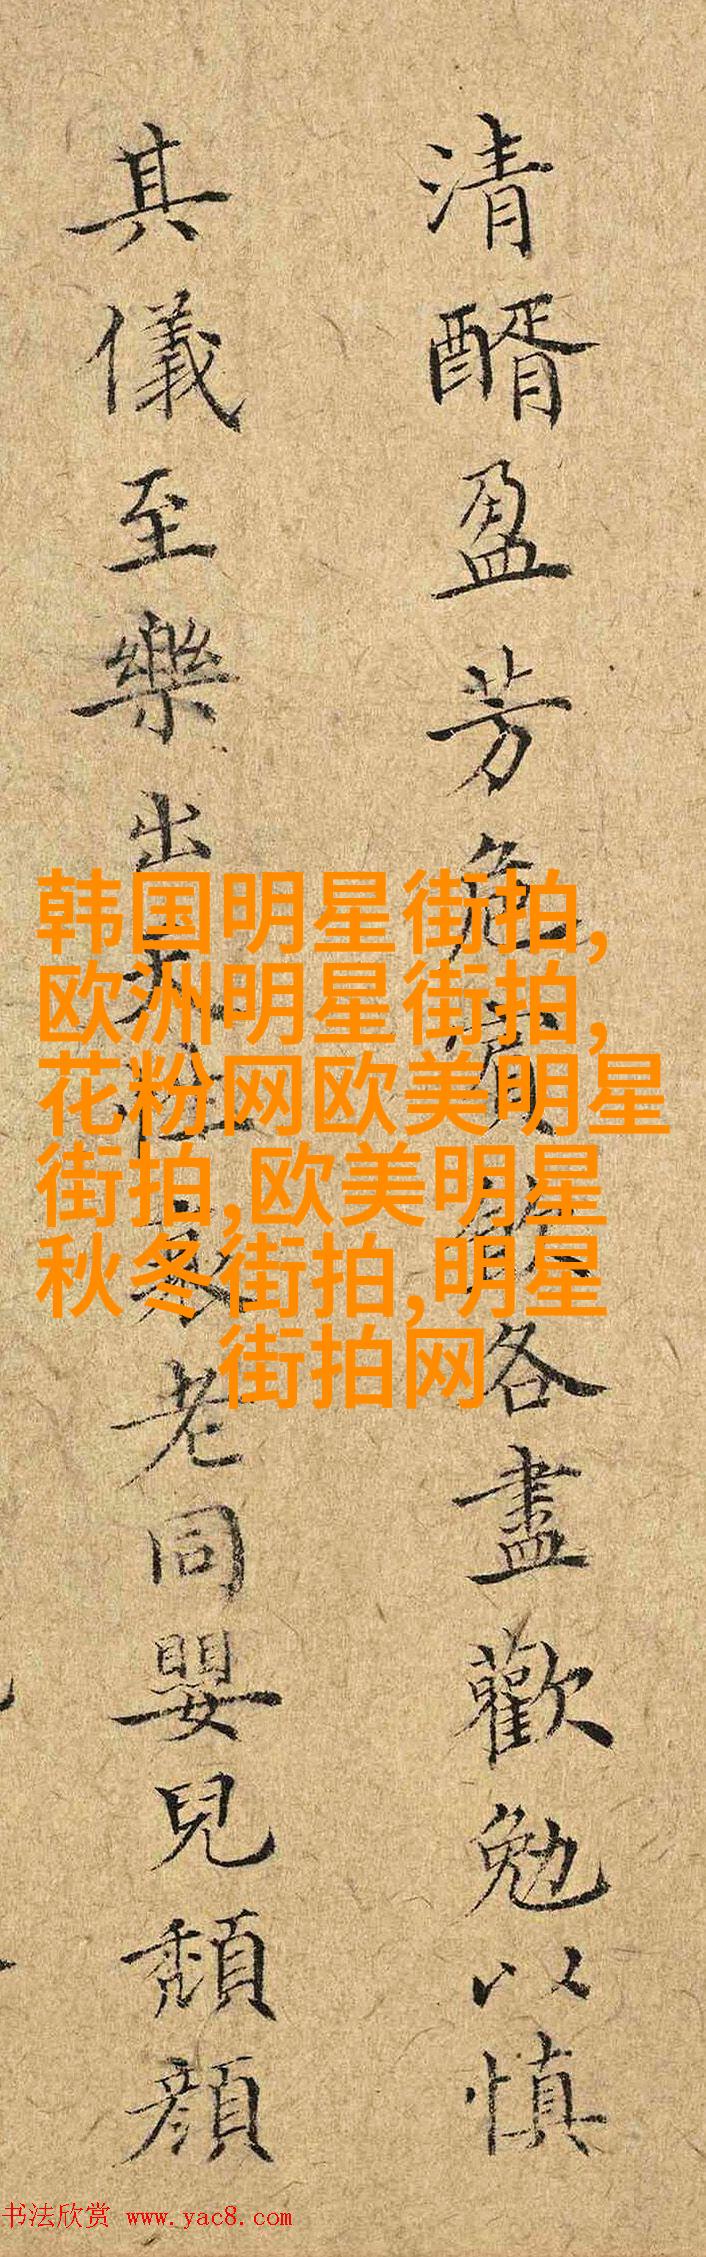 清醑盈芳賓飲各盡歡勉以慎
其儀至樂出天性黎老同嬰兒頽顏
韩国明星街拍,
欧洲明星街拍,
花粉网欧美明星
街拍,欧美明星
秋冬街拍,明星
街拍网
书法欣赏 www.yac8.com